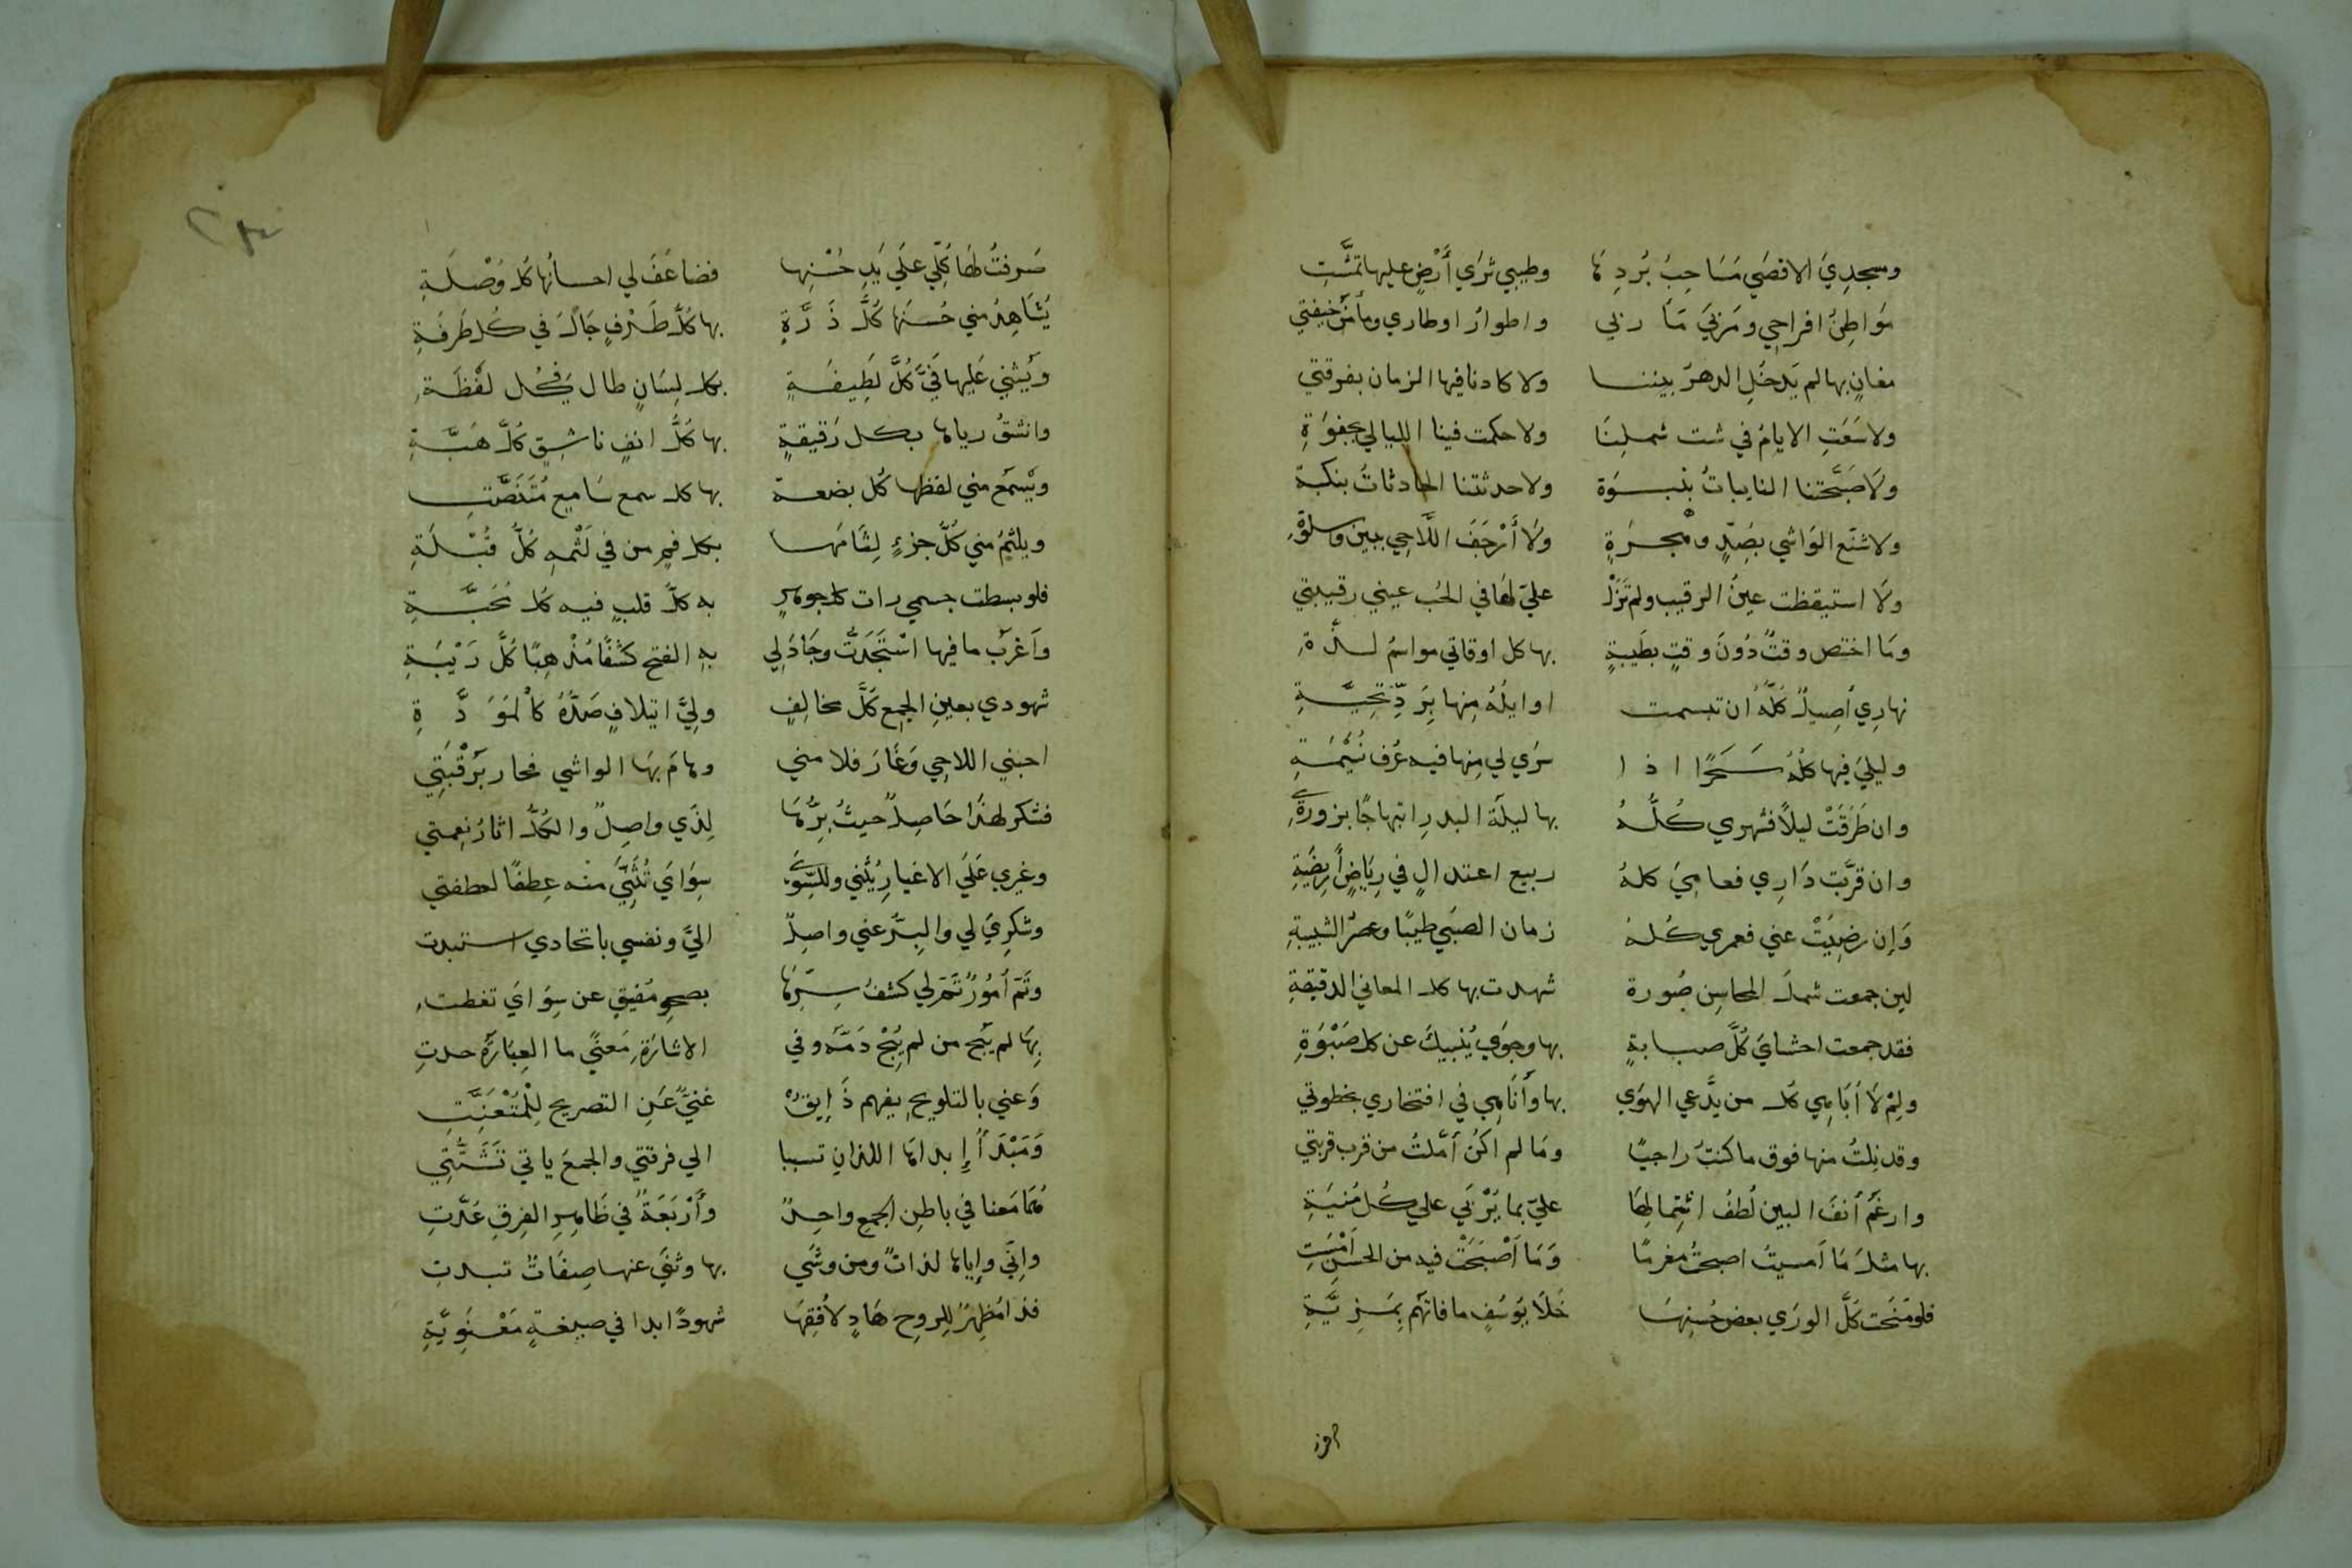 ومسجدي الاقصَي مَسَاحِبُ بُردِهَا وطيبي ثرَي أَرْضٍ عليها تمشَّتِ
مَواطِنُ افراحِي ومَرْبَي مَآربي واطوارُ اوطاري ومأمَنُ خيفتي
مغانٍ بها لم يَدخُلِ الدهرُ بيننا ولا كادنا فيها الزمان بفرقتي
ولا سَعَتِ الايامُ في شت شملِنَا ولا حكمت فينا الليالي بجفوَةِ
ولَا صَبَّحَتنا النايباتُ بِنَبوَة ولا حدثتنا الحادثاتُ بنكبة
ولا شنّع الوَاشي بصَدٍّ وهجرَةٍ ولَا أَرْجَفَ اللَّاحِي ببين وسلوةِ
ولَا استيقظت عينُ الرقيب ولم تَزَلْ عليّ لهَا في الحُب عيني رقيبتي
ومَا اختص وقتٌ دُونَ وقتٍ بطَيبةٍ بها كل اوقاتي مواسمُ لذَّةِ
نهارِي أَصِيلٌ كُلُّهُ ان تبسمت اوايلُهُ مِنها بِرَدِّ تحِيَّةِ
وليليَ فِيها كلُهُ سَحَرًا اذا سرَي لي مِنها فيه عُرف نُسَيْمَةِ
وان طَرَقَتْ ليلاً فشهري كُلُّهُ بها ليلَة البدرِ ابتهاجًا بزورةِ
وان قرَّبَت دَارِي فعامِيَ كلهُ ربيع اعتدالٍ في رِيَاضٍ أَرِيضَةِ
وَإن رضِيَتْ عني فعمري كُلهُ زمان الصبَي طيبًا وعصرُ الشبيبةِ
لين جمعت شملَ المحاسِن صُورة شهدت بها كل المعاني الدقيقةِ
فقد جمعت احشايَ كُلَّ صبابةٍ بها وجوًي يُنبيكَ عن كل صَبْوَةِ
ولِمْ لَا أبَاهِي كل من يدَّعي الهوَي بها وأنَاهِي في افتخاري بخطوتي
وقد نِلتُ منها فوق ما كنتُ راجيًا ومَا لم اكُن أمَّلتُ من قرب قربتي
وارغَمَ أنفَ البين لُطفُ اشتِمالِهَا عليّ بما يُرْبَي علي كُل مُنيَةِ
بها مثلَ مَا أمسيتُ اصبحتُ مغرمًا وَمَا أصْبَحَتْ فيه من الحسنِ أَمْسَتِ
فلو منَحَت كلَّ الورَي بعض حُسنِهَا خَلَا يوسُفٍ ما فاتَهُم بِمَزِيَّةِ
صرفتُ
صَرفتُ لهَا كُلِّي علَي يَدِ حُسْنِها فضاعَفَ لي احسانُها كل وُصْلَةِ
يُشَاهِدُ مني حُسنَها كُلُّ ذَرَّةٍ بها كُلُّ طَرْفٍ جَالَ في كُل طَرفَةِ
ويُثني عَليها فيَّ كُلُّ لَطِيفَةٍ بكل لِسَانٍ طال في كُل لفْظَةِ
وانشقُ رياها بكل رَقيقةٍ بها كُلُّ انفٍ ناشِقٍ كُلَّ هَبَّةِ
ويَسمَعُ مني لفظها كُل بضعة بها كل سمع سَامِعٍ مُتَنَصِّتِ
ويلثمُ مني كُلُّ جزءٍ لِثَامَها بكل فمٍ من في لَثْمِهِ كُلُّ قُبْلَةِ
فلو بسطت جسمي رات كل جوهرٍ به كلُّ قلبٍ فيه كل مَحَبَّةِ
وَأغرَبُ ما فيها اسْتَجَدتُّ وجَادَ لِي بهِ الفتح كشفًا مُذْهِبًا كُلَّ رَيْبَةِ
شهودي بعينِ الجمعِ كلَّ مخالِفٍ ولِيَّ ايتلافٍ صَدُّهُ كالْمَوَدَّةِ
احبني اللاحِي وَغَارَ فلامني وهامَ بهَا الواشي فحار برَقْبَتِي
فشكر لهذَا حَاصِلٌ حيثُ بِرُّهَا لِذَي واصِلٌ والكُلُّ اثارُ نِعمتي
وغيري عَلَي الاغيارِ يُثني وللسِّوَي سِوَايَ تُثَنَّي منه عِطفًا لعطفتي
وشكرِيَ لي والبِرُّ عني واصِلٌ اليَّ ونفسي باتحادي استبدت
وثَمَّ أمُورٌ تَمَّ لي كشفُ سِرِّهَا بصحوِ مُفيقٍ عن سِوَايَ تغطتِ
بِهَا لم يَبُح من لم يُبِحْ دَمَهُ وفي الاشارَةِ مَعنًي ما العِبَارَةُ حدتِ
وَعني بالتلويح يفهم ذَايِقٌ غنيٌّ عَنِ التصريح لِلْمُتَعَنِّتِ
وَمَبْدَأُ إِبداهَا اللذانِ تسببا الي فرقتي والجمعَ ياتي تَشَتُّتِي
هُمَا مَعنا في باطِنِ الجمعِ واحِدٌ وأَرْبَعَةٌ في ظَاهِرِ الفِرقِ عَدَّتِ
واِنّي وإياها لذاتٌ ومن وشَي بها وثنَي عنها صِفَاتٌ تبدتِ
فذا مُظهِرٌ لِلروحِ هَادٍ لأُفقِهَا شهودًا بدا في صيغةٍ مَعْنَوِيَّةِ